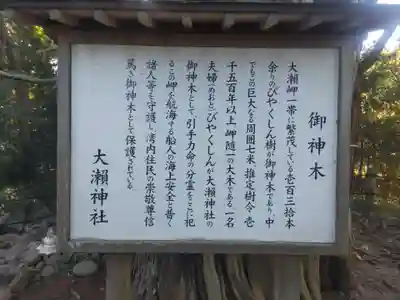 御神木
大瀬岬一帯に繁茂している壱百三拾本
余りのびやくしん樹が御神木であり、中
でもこの巨大なる周囲七米、推定樹令壱
千五百年以上岬随一の大木である。一名
夫婦(めおと)びやくしんが大瀬神社の
御神木として、引手力命の分霊をここに祀
るこの岬を航海する船人の海上安全と普く
諸人等を守護し湾内住民の崇敬尊信
篤き御神木として保護されている。
大瀬神社